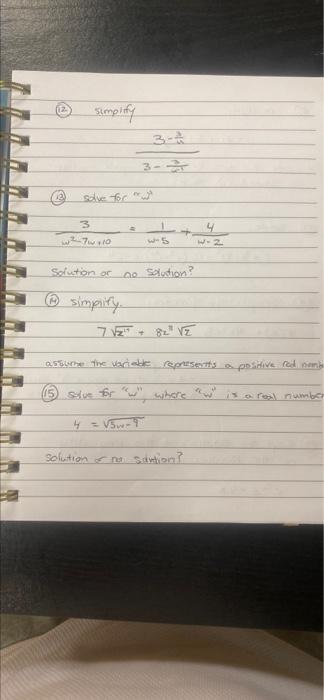 (12) simplify
3 - 3/
3 -
(13) solve for "w"
3/(w²-7w+10) = 1/(w-5) + 4/(w-2)
Solution or no solution?
(14) simplify.
7√z + 8z √z
assume the variable represents a positive real numb
(15) solve for "w", where "w" is a real number
4 = √5w-9
Solution or no solution?